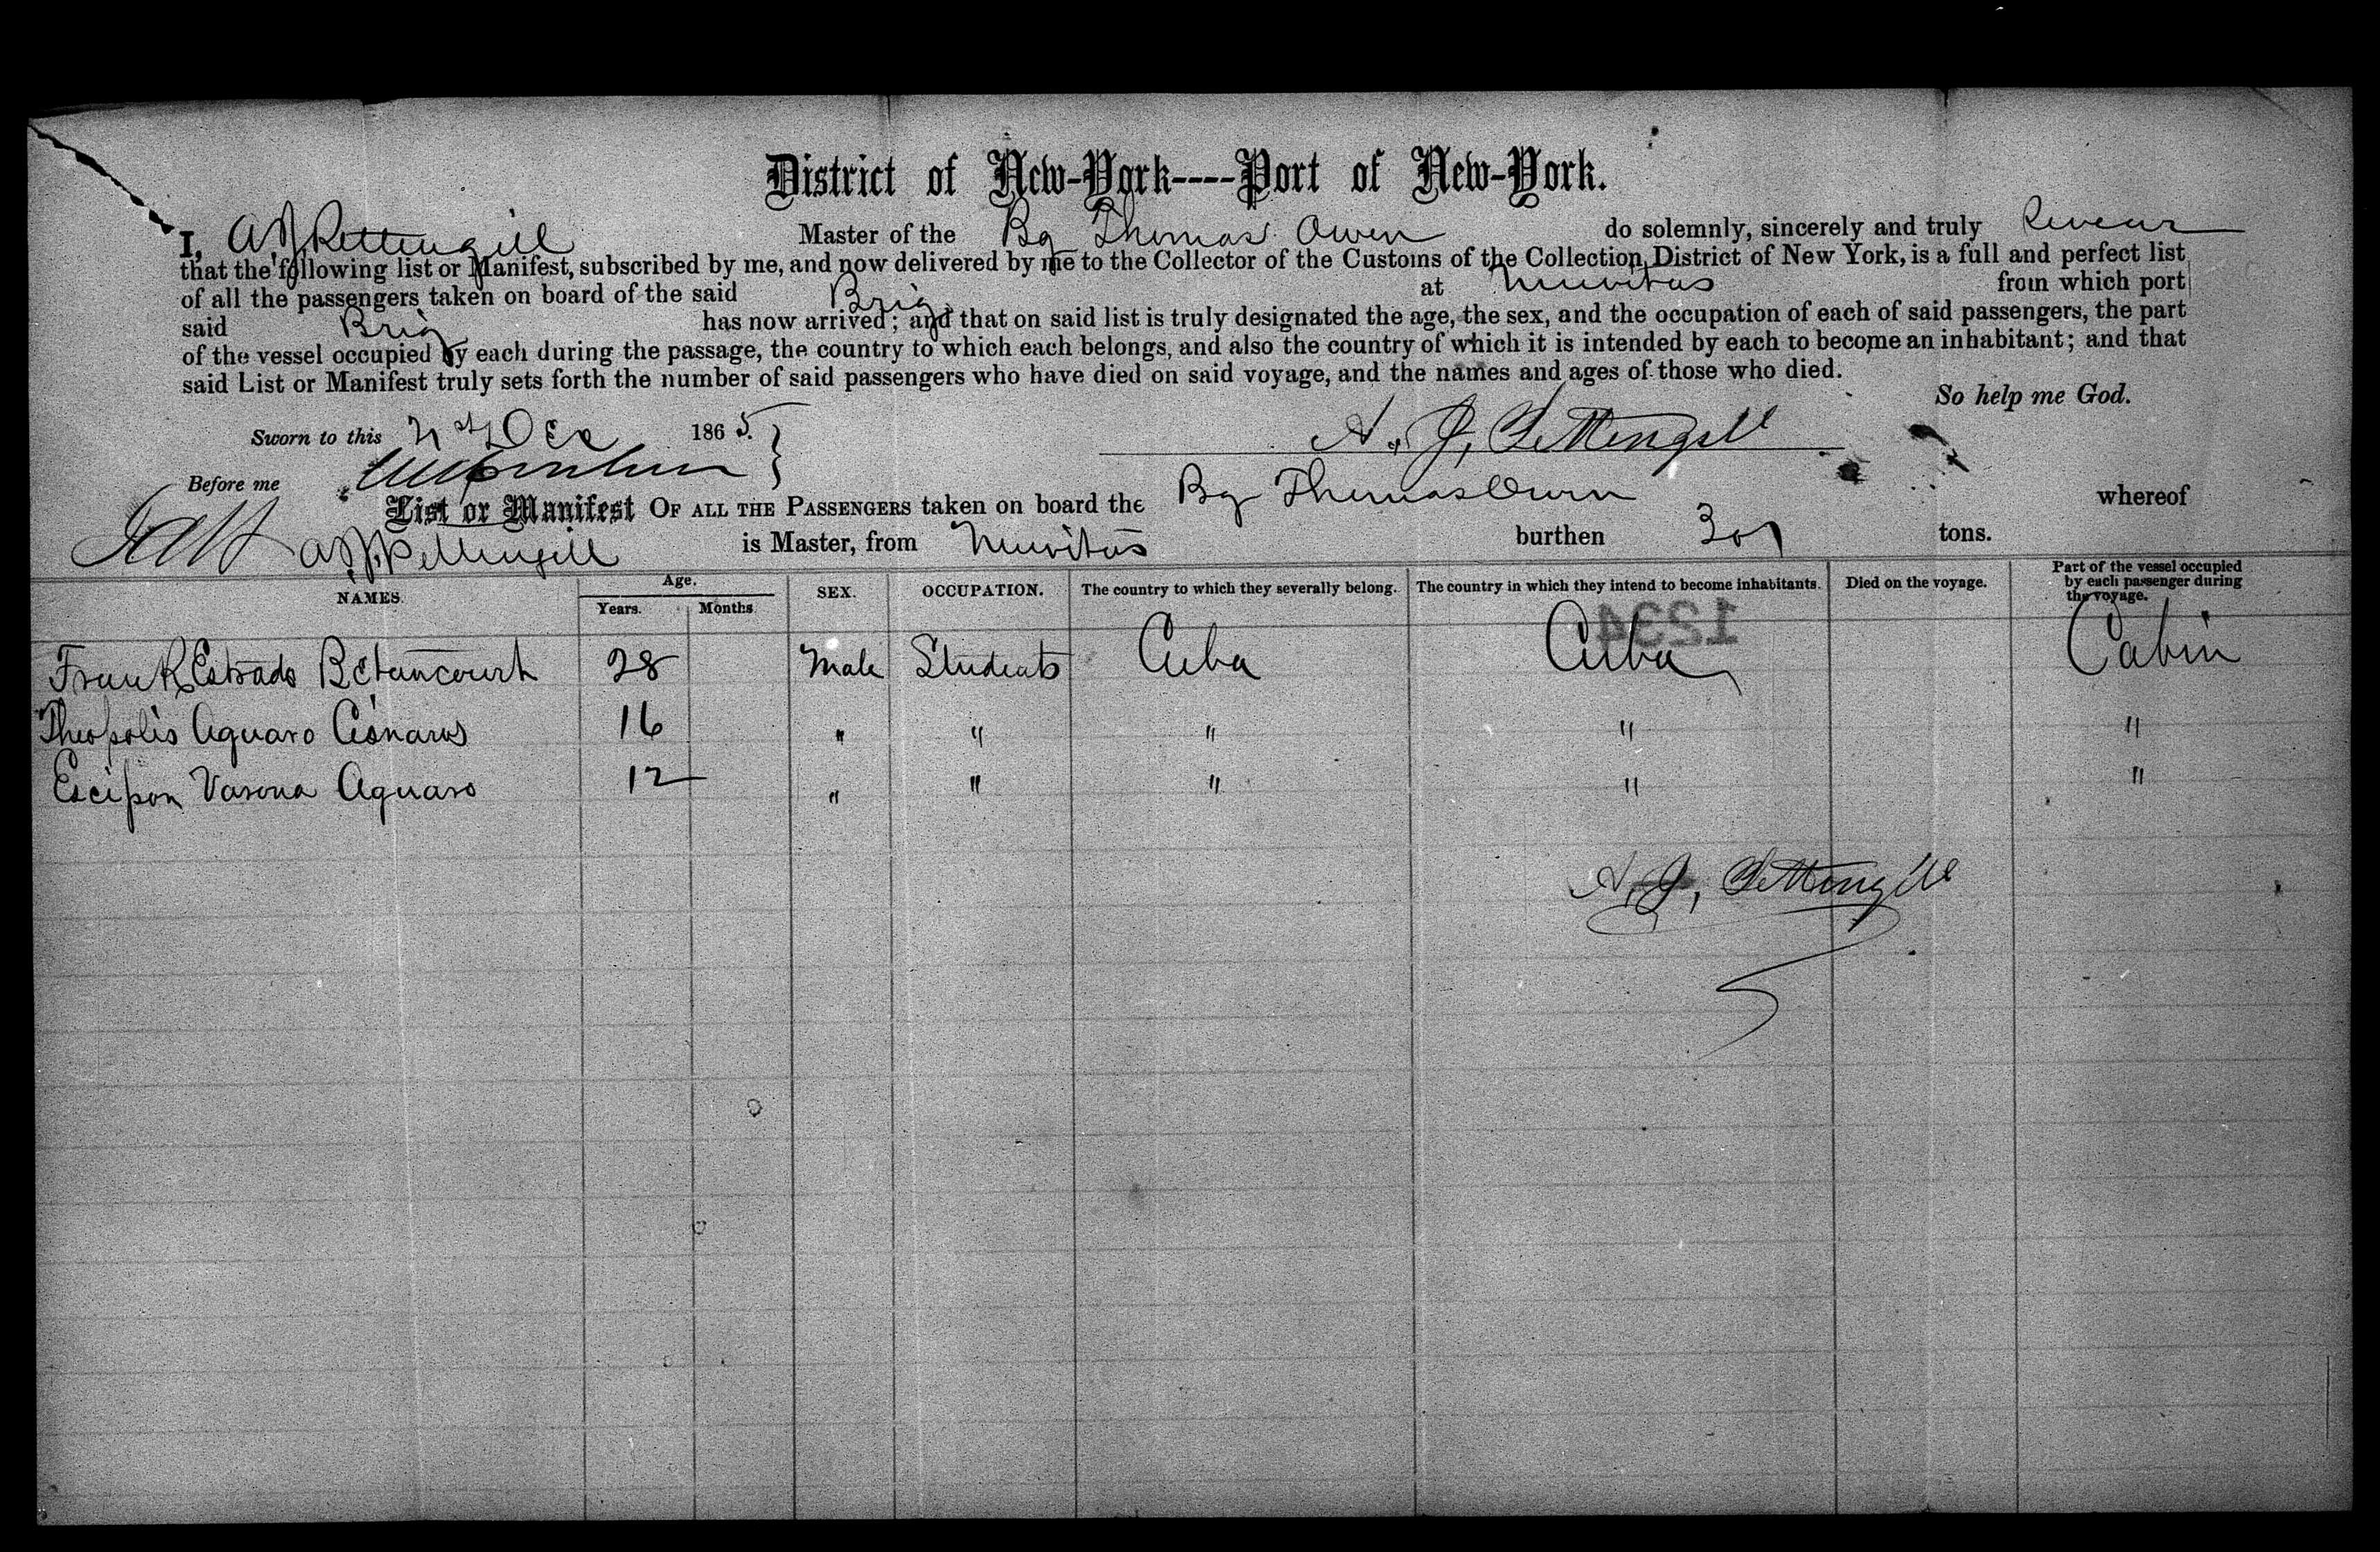 District of New-York----Port of New-York.
I, A J Pettengill Master of the Bg Thomas Owen do solemnly, sincerely and truly swear
that the following list or Manifest, subscribed by me, and now delivered by me to the Collector of the Customs of the Collection District of New York, is a full and perfect list
of all the passengers taken on board of the said Brig at Nuevitas from which port
said Brig has now arrived; and that on said list is truly designated the age, the sex, and the occupation of each of said passengers, the part
of the vessel occupied by each during the passage, the country to which each belongs, and also the country of which it is intended by each to become an inhabitant; and that
said List or Manifest truly sets forth the number of said passengers who have died on said voyage, and the names and ages of those who died.
So help me God.
Sworn to this Dec 1865. A. J. Pettengill
Before me
List or Manifest OF ALL THE PASSENGERS taken on board the Bg Thomas Owen whereof
A J Pettengill is Master, from Nuevitas burthen 307 tons.
NAMES. Age. Years. Months. SEX. OCCUPATION. The country to which they severally belong. The country in which they intend to become inhabitants. Died on the voyage. Part of the vessel occupied by each passenger during the voyage.
1234
Frank Estrado Betancourt 28 Male Students Cuba Cuba Cabin
Theopolis Aguaro Cisnaros 16 " " " " "
Escipon Varona Aguaro 12 " " " " "
A. J. Pettengill